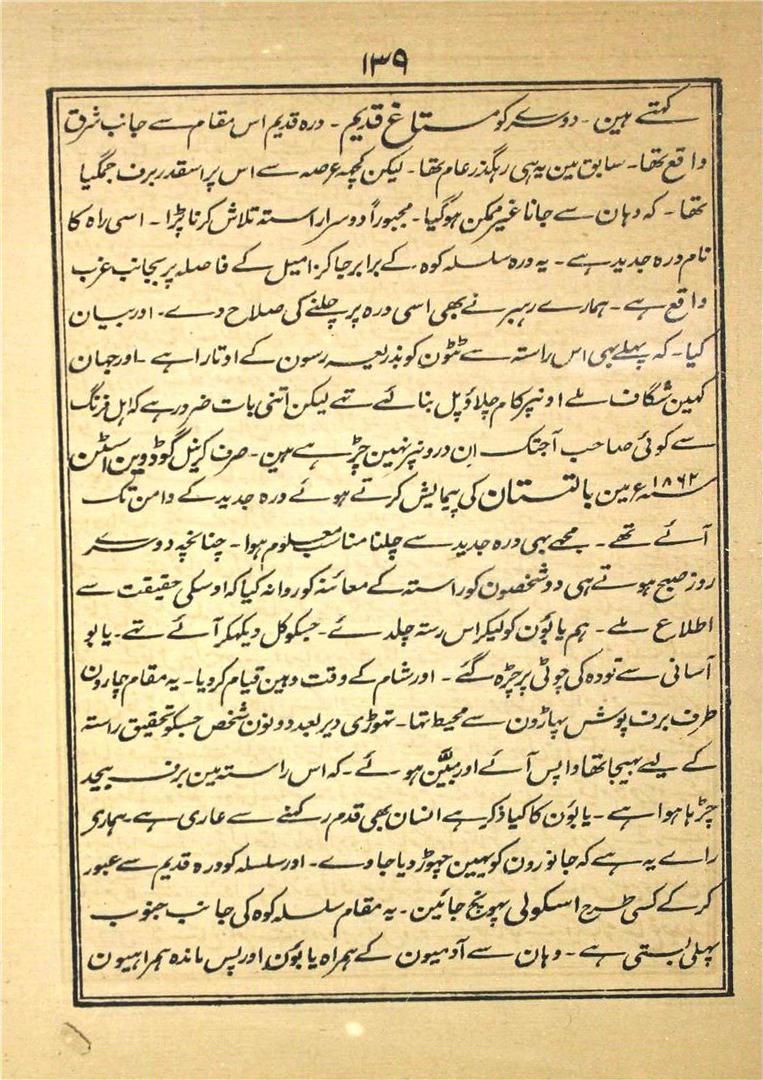 ۱۳۹
کہتے ہین ۔ دوسرے کو مستاغ قدیم ۔ درہ قدیم اس مقام سے جانب شرق
واقع تھا۔ سابق مین یہ ہی رہگذر عام تھا ۔ لیکن کچہہ عرصہ سے اس پر اسقدر برف جمگیا
تھا ۔ کہ وہان سے جانا غیر ممکن ہوگیا۔ مجبوراً دوسرا راستہ تلاش کرنا پڑا ۔ اسی راہ کا
نام درہ جدید ہے ۔ یہ درہ سلسلہ کوہ کے برابر جاکر ۱۰ میل کے فاصلہ پر بجانب غرب
واقع ہے ۔ ہمارے رہبر نے بھی اسی درہ پر چلنے کی صلاح دے ۔ اور بیان
کیا ۔ کہ پہلے بہی اس راستہ سے ٹٹون کو بذریعہ رسون کے اوتارا ہے ۔ اور جہان
کہین شگاف ملے اونپر کام چلاؤ پل بنائے تہے لیکن اتنی بات ضرور ہے کہ اہل فرنگ
سے کوئی صاحب آجتک اِن درونپر نہین چڑہے ہین ۔ صرف کرنیل گوڈوین اسٹن
سنہ ۱۸۶۲ء مین بالتستان کی پیمایش کرتے ہوئے درہ جدید کے دامن تک
آئے تھے ۔ مجھے بہی درہ جدید سے چلنا مناسب معلوم ہوا ۔ چنانچہ دوسرے
روز صبح ہوتے ہی دو شخصون کو راستہ کے معائنہ کو روانہ کیا کہ اوسکی حقیقت سے
اطلاع ملے ۔ ہم یابوٗن کو لیکر اس رستہ چلدئے ۔ جسکو کل دیکہکر آئے تہے ۔ یابو
آسانی سے تودہ کی چوٹی پر چڑہ گئے ۔ اور شام کے وقت وہین قیام کردیا ۔ یہ مقام چارون
طرف برف پوش پہاڑون سے محیط تہا ۔ تہوڑی دیر بعد دونون شخص جسکو تحقیق راستہ
کے لیے بہیجا تھا واپس آئے اور مبیّن ہوئے ۔ کہ اس راستہ مین برف بیحد
چڑہا ہوا ہے ۔ یابوٗن کا کیا ذکر ہے انسان بھی قدم رکہنے سے عاری ہے ۔ ہماری
راے یہ ہے کہ جانورون کو یہین چہوڑ دیا جاوے ۔ اور سلسلہ کو درہ قدیم سے عبور
کرکے کسی طرح اسکولی پہونچ جائین ۔ یہ مقام سلسلہ کوہ کی جانب جنوب
پہلی بستی ہے ۔ وہان سے آدمیون کے ہمراہ یابوٗن اور پس ماندہ ہمراہیون